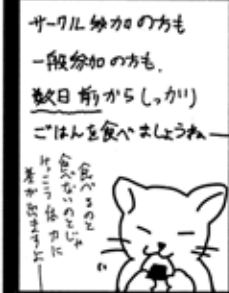 サークル参加の方も
一般参加の方も、
数日前からしっかり
ごはんを食べましょうねー
食べるのと
食べないのとじゃ
けっこう体力に
差が出ますよー